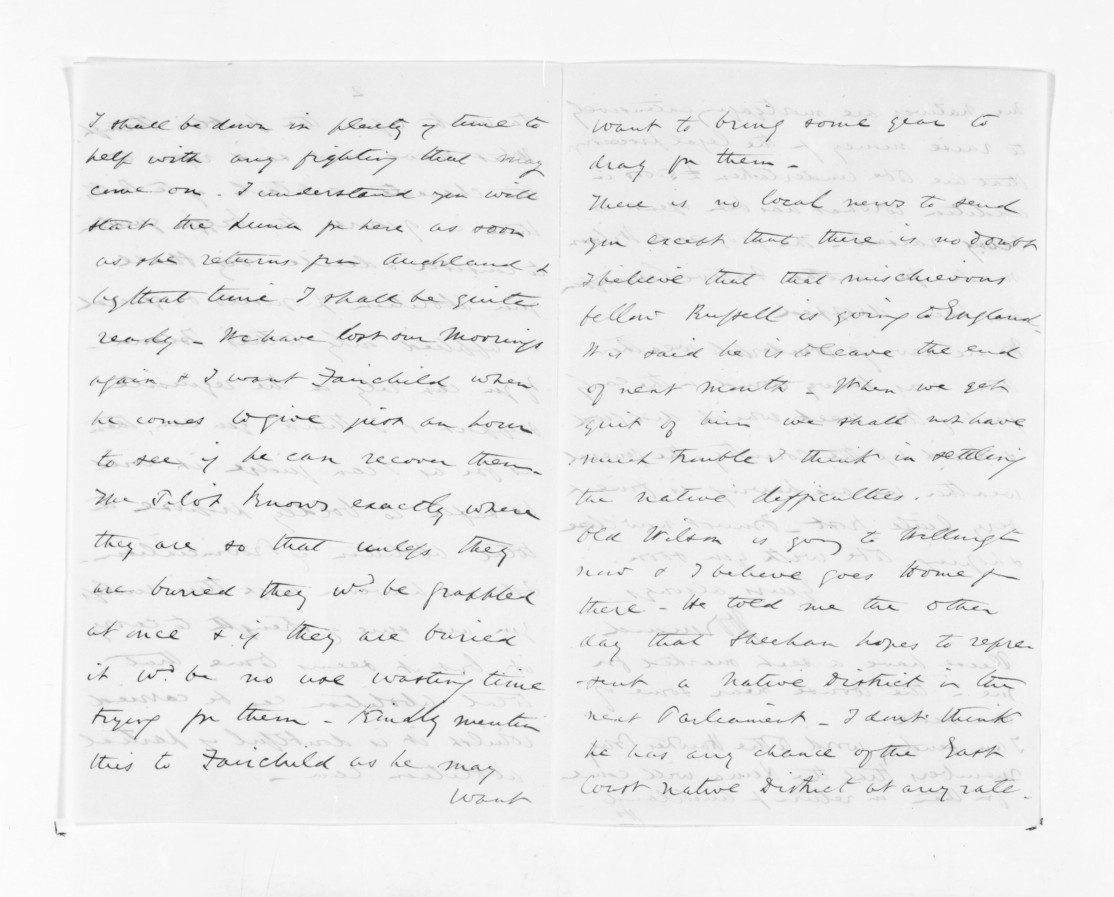 I shall be down in plenty of time to
help with any fighting that may
come on. I understand you will
start the Luna for here as soon
as she returns from Auckland &
by that time I shall be quite
ready - We have lost our Moorings
again & I want Fairchild when
he comes to give just an hour
to see if he can recover them -
The Pilot knows exactly where
they are so that unless they
are buried they wd. be grappled
at once & if they are buried
it wd. be no use wasting time
trying for them - Kindly mention
this to Fairchild as he may
want
want to bring some gear to
drag for them -
There is no local news to send
you except that there is no doubt
I believe that that mischievous
fellow Russell is going to England -
It is said he is to leave the end
of next month - When we get
quit of him we shall not have
much trouble I think in settling
the native difficulties.
Old Wilson is going to Wellingt
now & I believe goes Home fm
there - He told me the other
day that Sheehan hopes to repre-
-sent a Native District in the
next Parliament - I don't think
he has any chance of the East
Coast Native District at any rate -